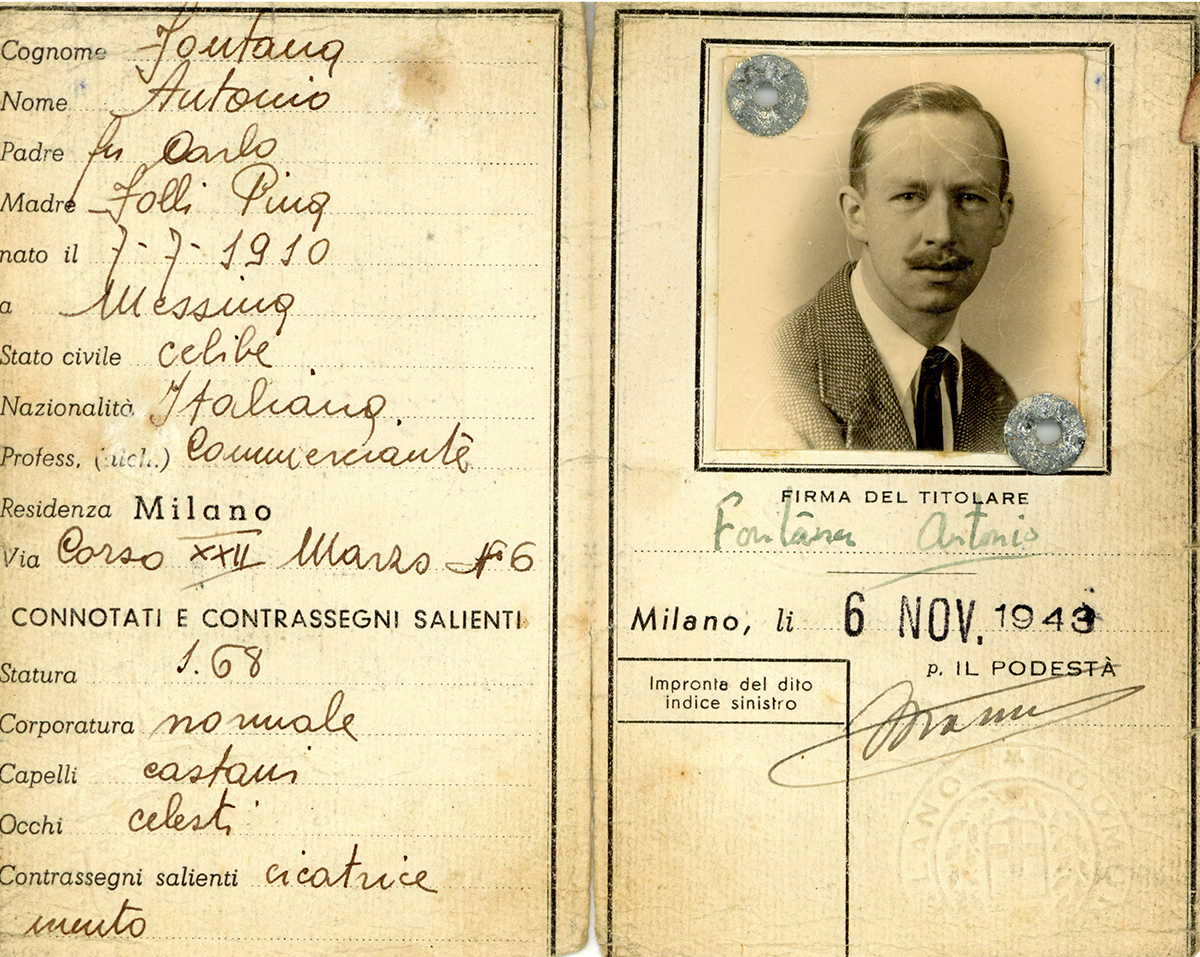 Cognome Fontana
Nome Antonio
Padre fu Carlo
Madre Folli Pina
nato il 7-7-1910
a Messina
Stato civile celibe
Nazionalità Italiana
Profess. (uich.) Commerciante
Residenza Milano
Via Corso XXII Marzo No 6
CONNOTATI E CONTRASSEGNI SALIENTI
Statura 1.68
Corporatura normale
Capelli castani
Occhi celesti
Contrassegni salienti cicatrice
mento
FIRMA DEL TITOLARE
Fontana Antonio
Milano, li 6 NOV. 1943
p. IL PODESTÀ
Impronta del dito
indice sinistro